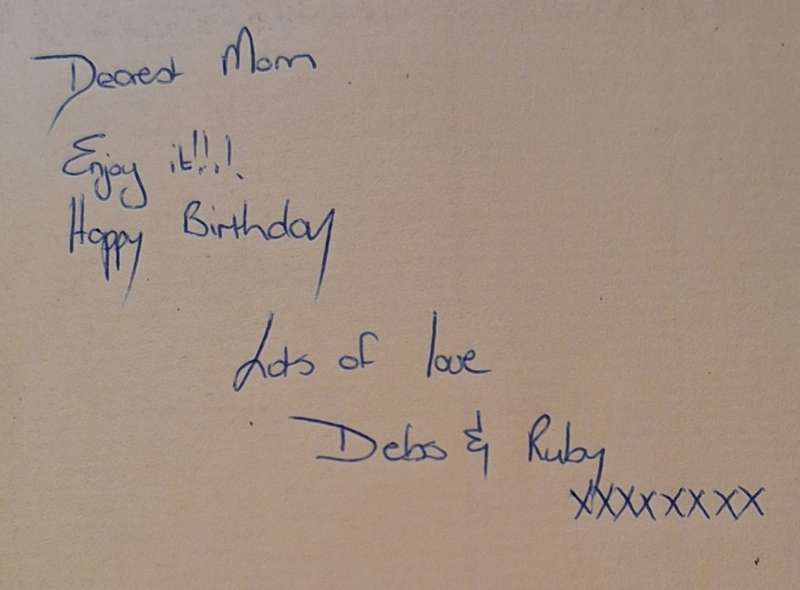 Dearest Mom
Enjoy it!!.!.
Happy Birthday
Lots of love
Debs & Ruby
xxxxxxxx